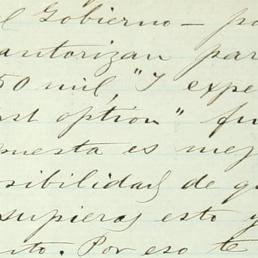 el Gobierno — po
autorizan par
50 mil, "I expe
rst option" fu
puesta es mej
sibilidad de q
supieras esto y
rto. Por eso te